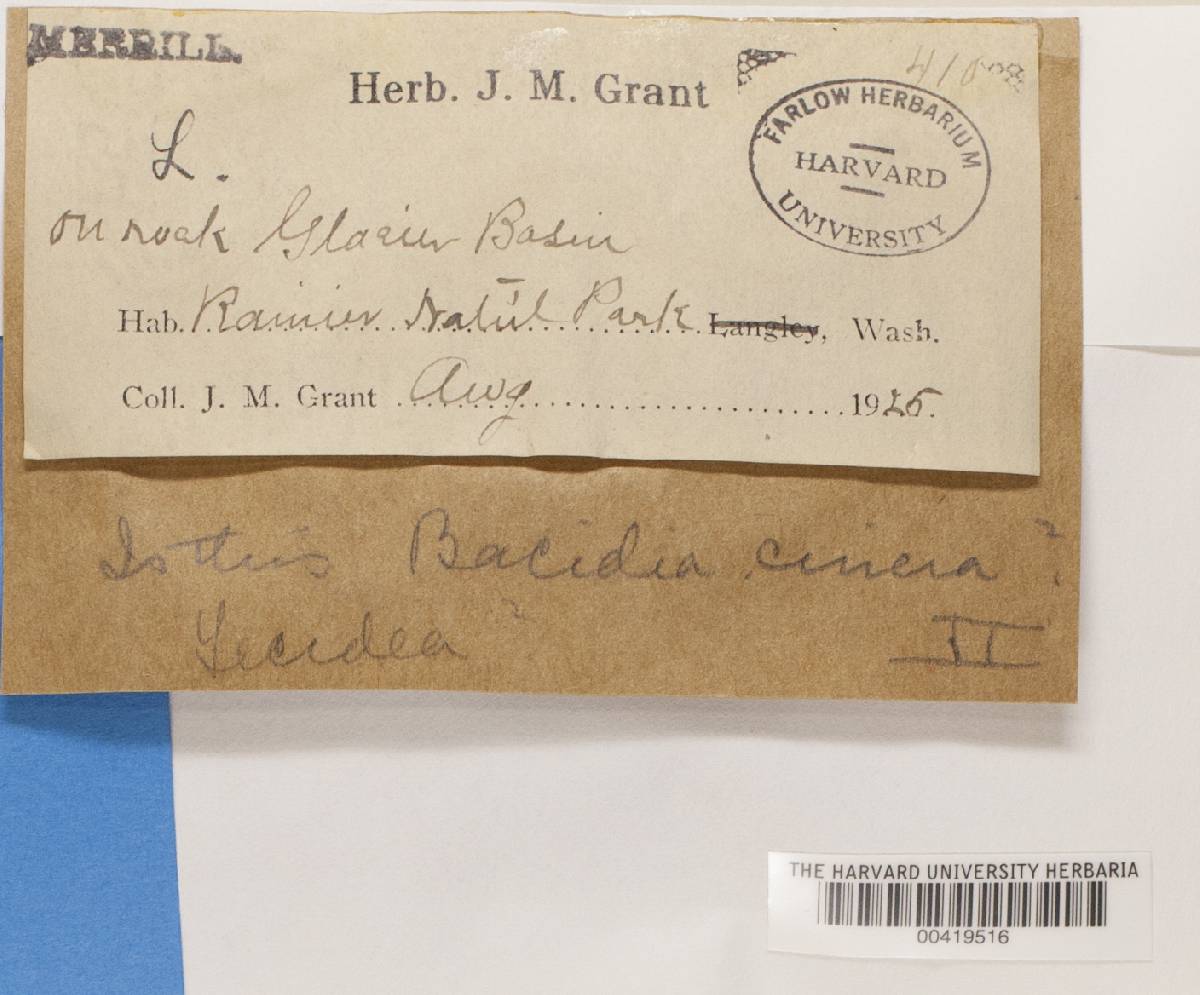 MERRILL.
Herb. J. M. Grant
410
FARLOW HERBARIUM
HARVARD
UNIVERSITY
L.
on rock Glacier Basin
Hab. Rainier Nat'l Park Langley, Wash.
Coll. J. M. Grant Aug 1925.
Is this Bacidia cinera?
Lecidea?
II
THE HARVARD UNIVERSITY HERBARIA
00419516